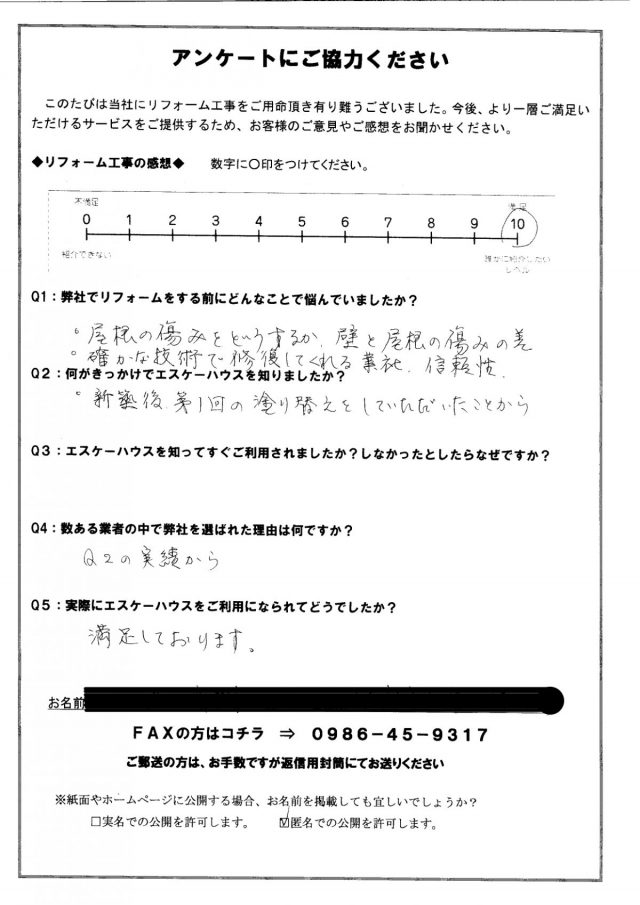 アンケートにご協力ください
このたびは当社にリフォーム工事をご用命頂き有り難うございました。今後、より一層ご満足い
ただけるサービスをご提供するため、お客様のご意見やご感想をお聞かせください。
◆リフォーム工事の感想◆ 数字に〇印をつけてください。
不満足 満足
0 1 2 3 4 5 6 7 8 9 10
紹介できない 誰かに紹介したい
レベル
Q1:弊社でリフォームをする前にどんなことで悩んでいましたか?
。屋根の傷みをどうするか、壁と屋根の傷みの差
。確かな技術で修復してくれる業社、信頼性、
Q2:何がきっかけでエスケーハウスを知りましたか?
。新築後、第1回の塗り替えをしていただいたことから
Q3:エスケーハウスを知ってすぐご利用されましたか?しなかったとしたらなぜですか?
Q4:数ある業者の中で弊社を選ばれた理由は何ですか?
Q2の実績から
Q5:実際にエスケーハウスをご利用になられてどうでしたか?
満足しております。
お名前
FAXの方はコチラ ⇒ 0986-45-9317
ご郵送の方は、お手数ですが返信用封筒にてお送りください
※紙面やホームページに公開する場合、お名前を掲載しても宜しいでしょうか?
□実名での公開を許可します。 ☑匿名での公開を許可します。